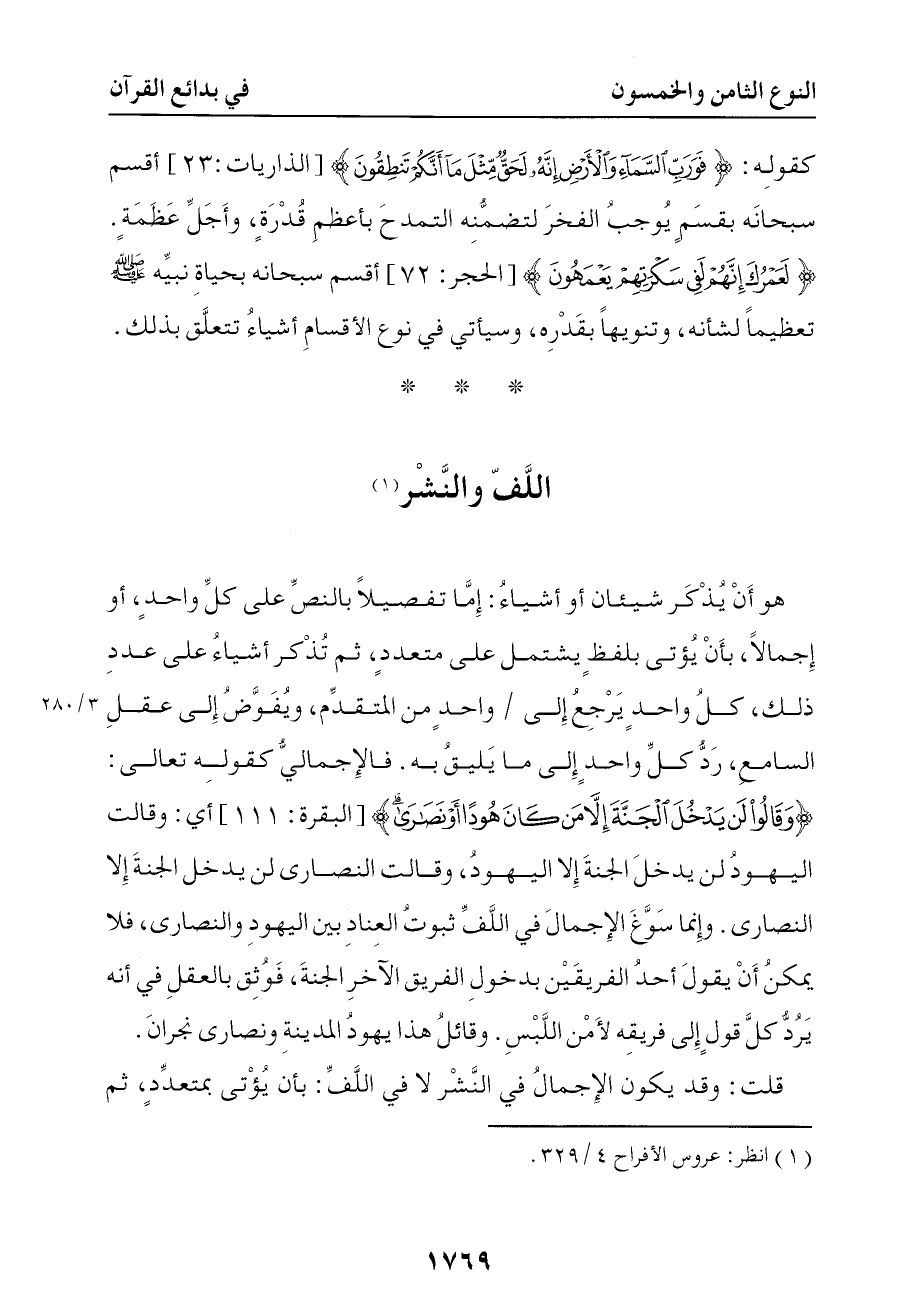 النوع الثامن والخمسون في بدائع القرآن
كقوله: ﴿ فَوَرَبِّ ٱلسَّمَآءِ وَٱلْأَرْضِ إِنَّهُۥ لَحَقٌّ مِّثْلَ مَآ أَنَّكُمْ تَنطِقُونَ ﴾ [الذاريات: ٢٣] أقسم
سبحانَه بقسَمٍ يُوجبُ الفخرَ لتضمُّنه التمدحَ بأعظمِ قُدْرَةٍ، وأجَلِّ عَظَمَةٍ.
﴿ لَعَمْرُكَ إِنَّهُمْ لَفِى سَكْرَتِهِمْ يَعْمَهُونَ ﴾ [الحجر: ٧٢] أقسم سبحانه بحياةِ نبيِّه ﷺ
تعظيماً لشأنه، وتنويهاً بقَدْرِه، وسيأتي في نوع الأقسامِ أشياءُ تتعلَّق بذلك.
* * *
اللَّفّ والنَّشْر (١)
هو أنْ يُذْكَر شيئان أو أشياءُ: إمَّا تفصيلاً بالنصِّ على كلِّ واحدٍ، أو
إجمالاً، بأنْ يُؤتى بلفظٍ يشتمل على متعدد، ثم تُذْكر أشياءُ على عددِ
ذلك، كلُ واحدٍ يَرْجِعُ إلى / واحدٍ من المتقدِّم، ويُفَوَّضُ إلى عقلِ ٢٨٠/٣
السامعِ، رَدُّ كلِّ واحدٍ إلى ما يَليقُ به. فالإجماليُّ كقوله تعالى:
﴿وَقَالُوا۟ لَن يَدْخُلَ ٱلْجَنَّةَ إِلَّا مَن كَانَ هُودًا أَوْ نَصَٰرَىٰ ۗ﴾ [البقرة: ١١١] أي: وقالت
اليهودُ لن يدخلَ الجنةَ إلا اليهودُ، وقالت النصارى لن يدخل الجنةَ إلا
النصارى. وإنما سَوَّغَ الإجمالَ في اللَّفِّ ثبوتُ العنادِ بين اليهودِ والنصارى، فلا
يمكنُ أنْ يقولَ أحدُ الفريقَيْن بدخولِ الفريق الآخرِ الجنةَ، فَوُثِق بالعقلِ في أنه
يَرُدُّ كلَّ قولٍ إلى فريقه لأمْن اللَّبْسِ. وقائلُ هذا يهودُ المدينة ونصارى نجرانَ.
قلت: وقد يكون الإجمالُ في النَّشْر لا في اللفِّ: بأن يُؤْتى بمتعدِّدٍ، ثم
(١) انظر: عروس الأفراح ٣٢٩/٤.
١٧٦٩